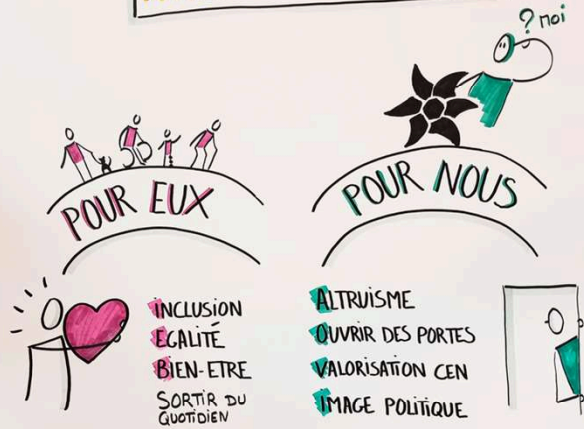 ? MOI
POUR EUX
POUR NOUS
INCLUSION
EGALITÉ
BIEN-ETRE
SORTIR DU
QUOTIDIEN
ALTRUISME
OUVRIR DES PORTES
VALORISATION CEN
IMAGE POLITIQUE